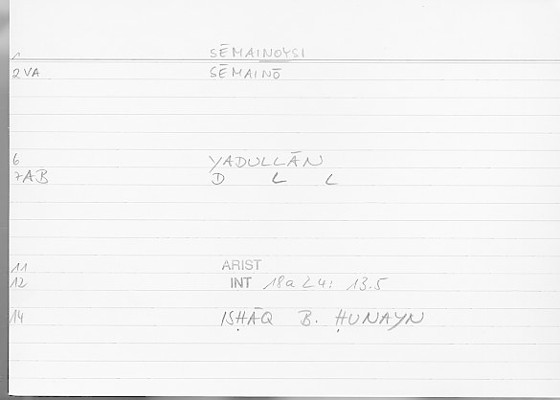 1 SĒMAINOYSI
2 VA SĒMAINŌ
6 YADULLĀN
7AB D L L
11 ARIST
12 INT 18a24: 13.5
14 ISḤĀQ B. ḤUNAYN